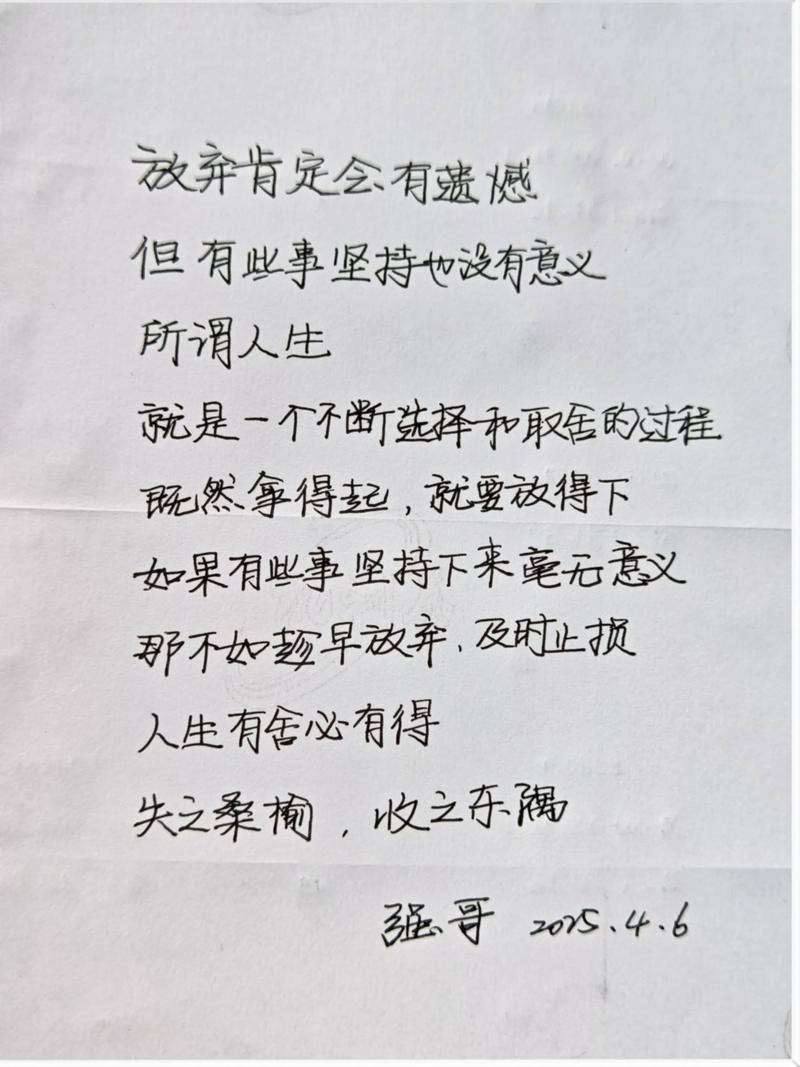 放弃肯定会有遗憾
但有些事坚持也没有意义
所谓人生
就是一个不断选择和取舍的过程
既然拿得起，就要放得下
如果有些事坚持下来毫无意义
那不如趁早放弃、及时止损
人生有舍必有得
失之桑榆，收之东隅
强哥 2025.4.6